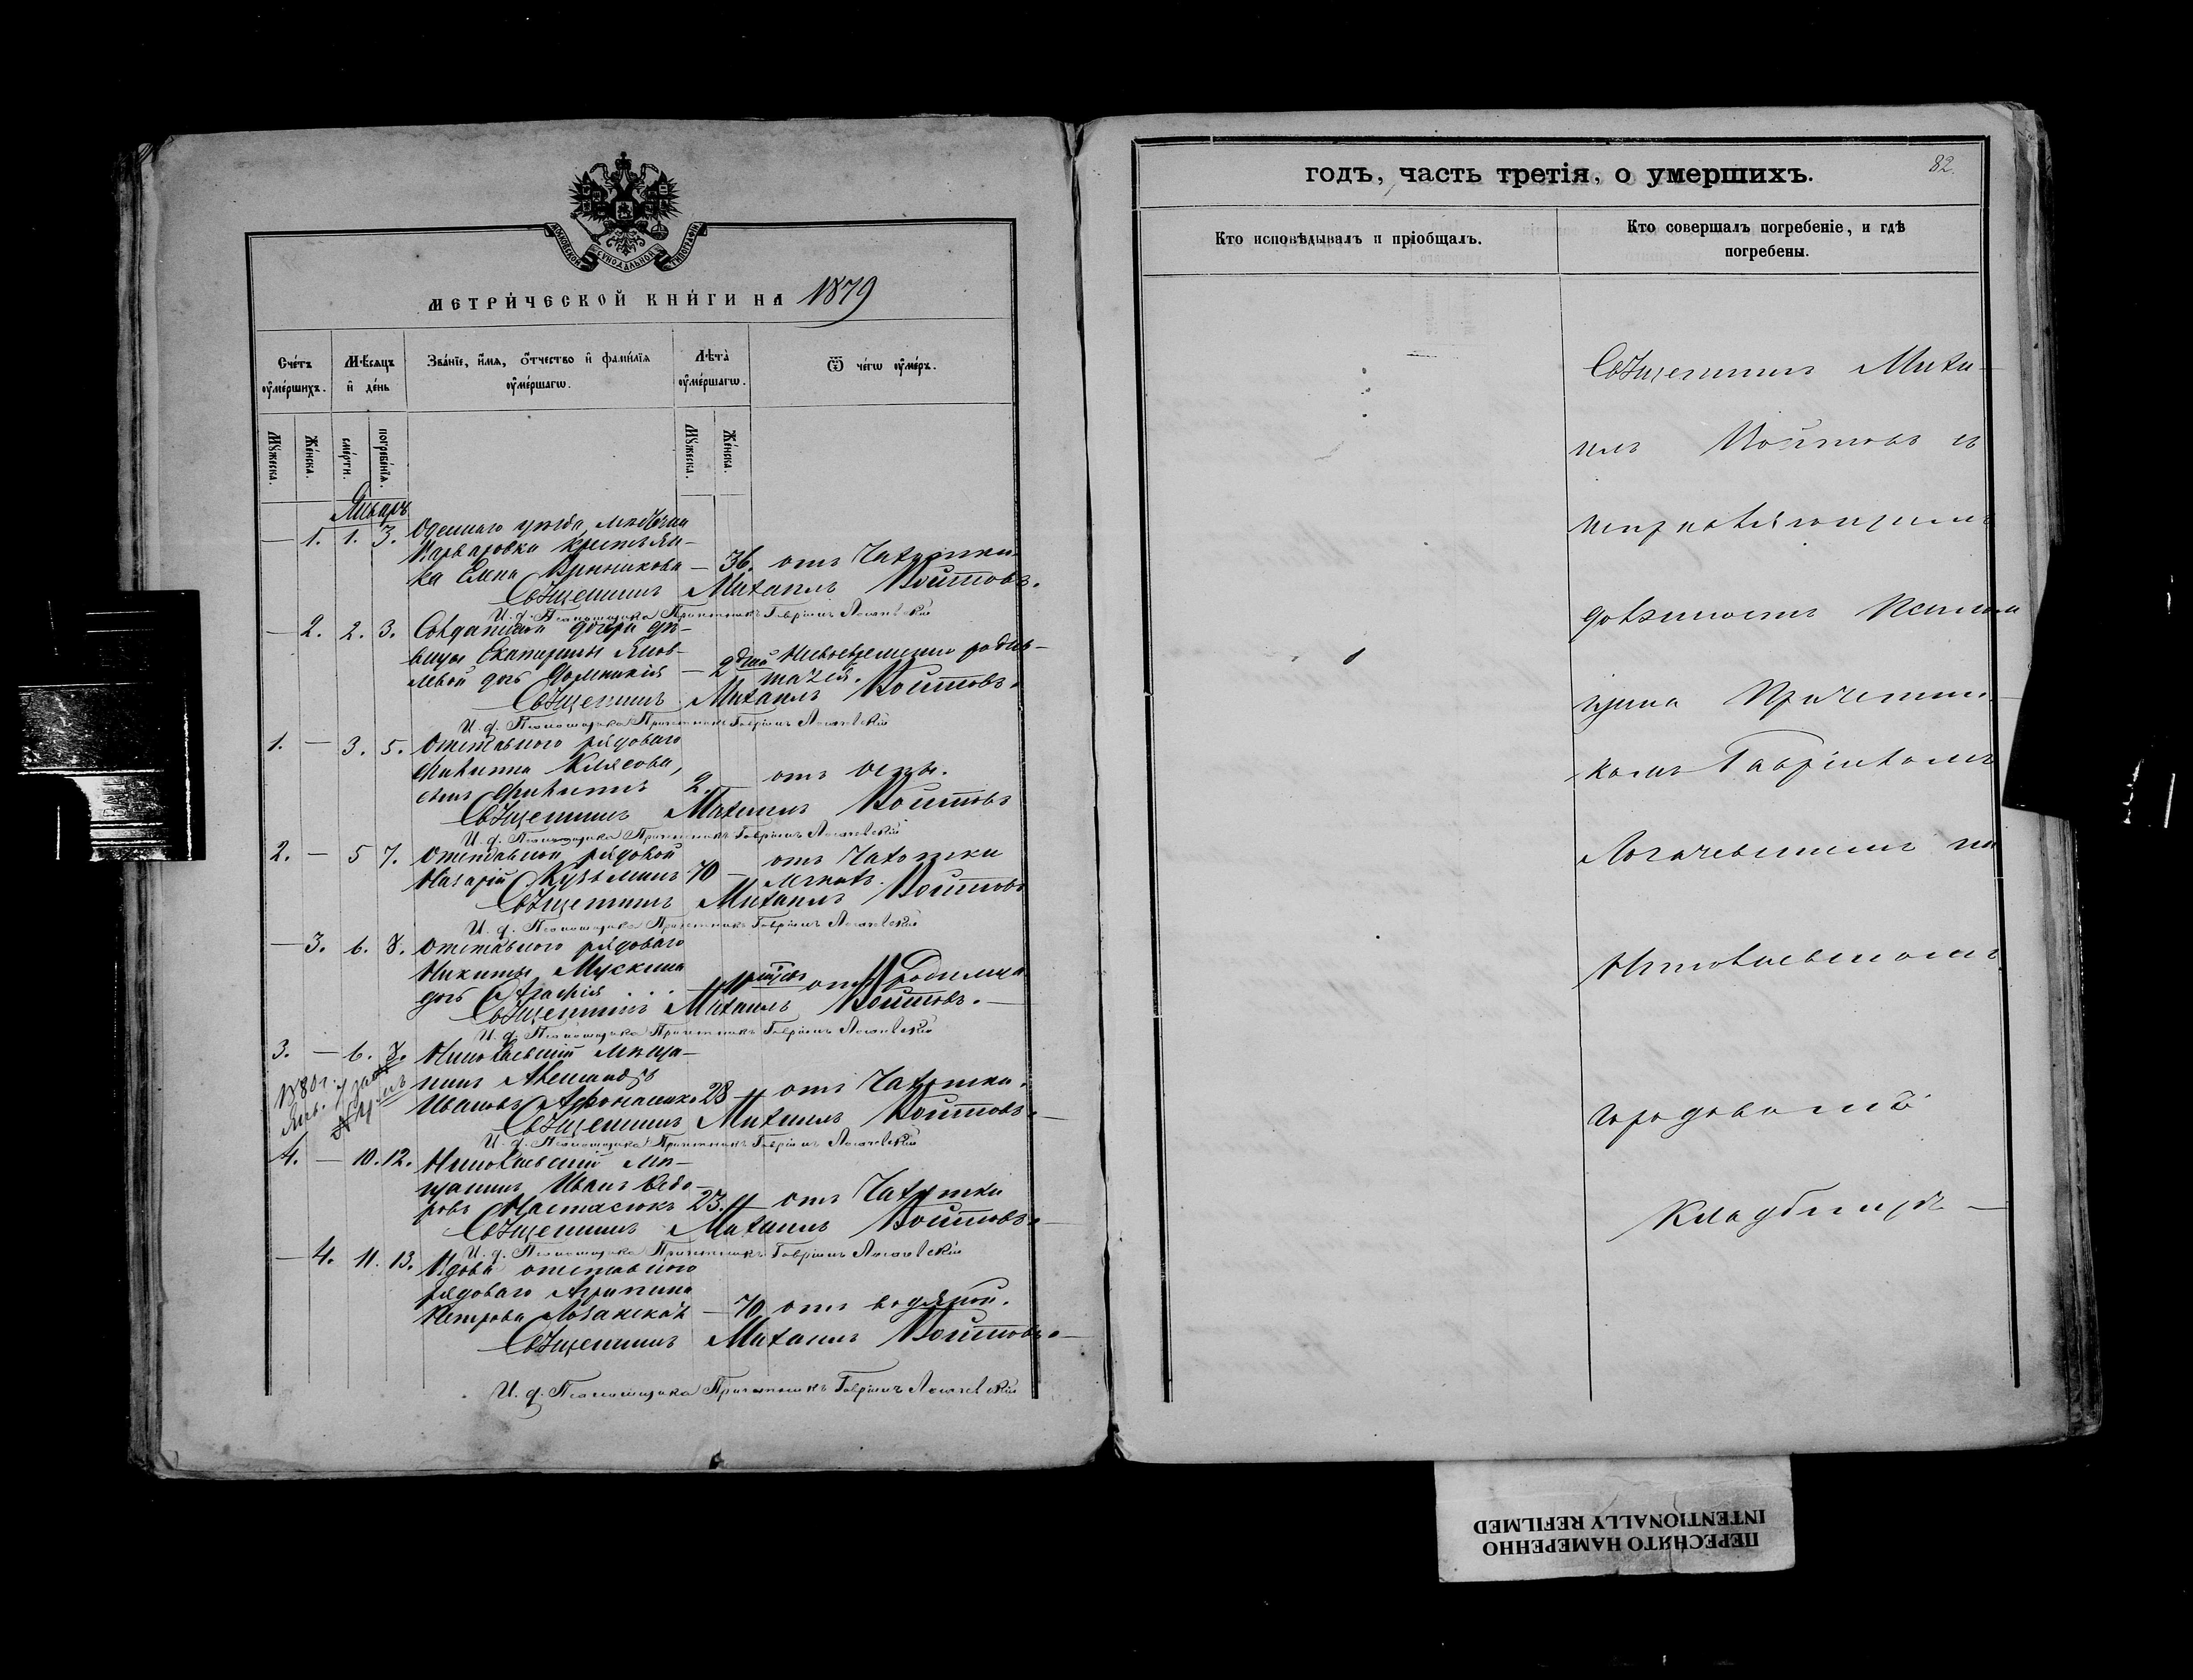 МОСКОВСКОЙ СѴНОДАЛЬНОЙ ТИПОГРАФІИ
МЕТРИ́ЧЕСКОЙ КНИ́ГИ НА 1879
Сче́тъ оу҆ме́ршихъ.
Мѣ́сяцъ и҆ де́нь
Зва́нїе, и҆́мѧ, ѻ҆́тчество и҆ фами́лїѧ оу҆ме́ршагѡ.
Лѣ́та оу҆ме́ршагѡ.
Ѿ чегѡ̀ оу҆́меръ.
Мꙋ́жеска.
Же́нска.
сме́рти.
погребе́нїѧ.
Мꙋ́жеска.
Же́нска.
Январь
— 1. 1. 3. Одесскаго уѣзда мѣстечка
Варваровки крестьян-
ка Елена — 36. отъ Чахотки
Священникъ Михаилъ Воитовъ.
И. д. Псаломщика Причетникъ Гавріилъ Логачевскій
— 2. 2. 3. Солдатской дочери дѣ-
вицы Екатерины Яков-
левой дочь Доминикія — 2 дней Несвоевременно родив-
шаяся.
Священникъ Михаилъ Воитовъ.
И. д. Псаломщика Причетникъ Гавріилъ Логачевскій
1. — 3. 5. Отставного рядоваго
Филиппа
сынъ Филиппъ 2. — отъ Оспы.
Священникъ Михаилъ Воитовъ
И. д. Псаломщика Причетникъ Гавріилъ Логачевскій
2. — 5 7. Отставной рядовой
Назарій Кузьминъ 70 — отъ Чахотки
легкихъ.
Священникъ Михаилъ Воитовъ
И. д. Псаломщика Причетникъ Гавріилъ Логачевскій
— 3. 6. 8. Отставного рядоваго
Никиты Мускина
дочь . . . — отъ Родимца
Священникъ Михаилъ Воитовъ. —
И. д. Псаломщика Причетникъ Гавріилъ Логачевскій
3. — 6. 8. Николаевскій мѣща-
нинъ Александръ
Ивановъ Афонасенко 28 — отъ Чахотки.
1880 г.
Янв. 7
Священникъ Михаилъ Воитовъ. —
И. д. Псаломщика Причетникъ Гавріилъ Логачевскій
4. — 10. 12. Николаевскій мѣ-
щанинъ Иванъ Ѳедо-
ровъ Настасюкъ 23. — отъ Чахотки
Священникъ Михаилъ Воитовъ. —
И. д. Псаломщика Причетникъ Гавріилъ Логачевскій
— 4. 11. 13. Вдова отставного
рядоваго Агрипина
Петрова — 70 отъ водяной.
Священникъ Михаилъ Воитовъ. —
И. д. Псаломщика Причетникъ Гавріилъ Логачевскій
годъ, часть третія, о умершихъ.
82.
Кто исповѣдывалъ и пріобщалъ.
Кто совершалъ погребеніе, и гдѣ
погребены.
Священникъ Миха-
илъ Воитовъ съ
исправляющимъ
должность Псалом-
щика Причетни-
комъ Гавріиломъ
Логачевскимъ на
Николаевскомъ
городовомъ
кладбищѣ —
ПЕРЕСНЯТО НАМЕРЕННО
INTENTIONALLY REFILMED